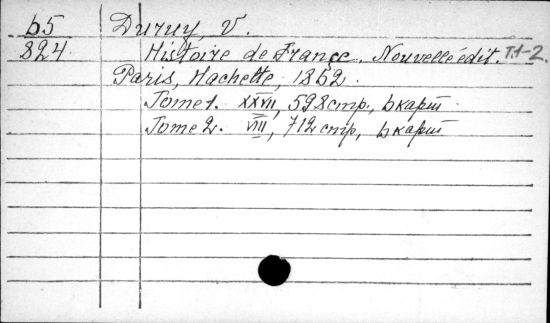 b5 Duruy, V.
824 Histoire de France. Nouvelle édit. T.1-2.
Paris, Hachette, 1862.
Tome 1. XXVII, 598 стр., 6 карт
Tome 2. VIII, 712 стр, 6 карт